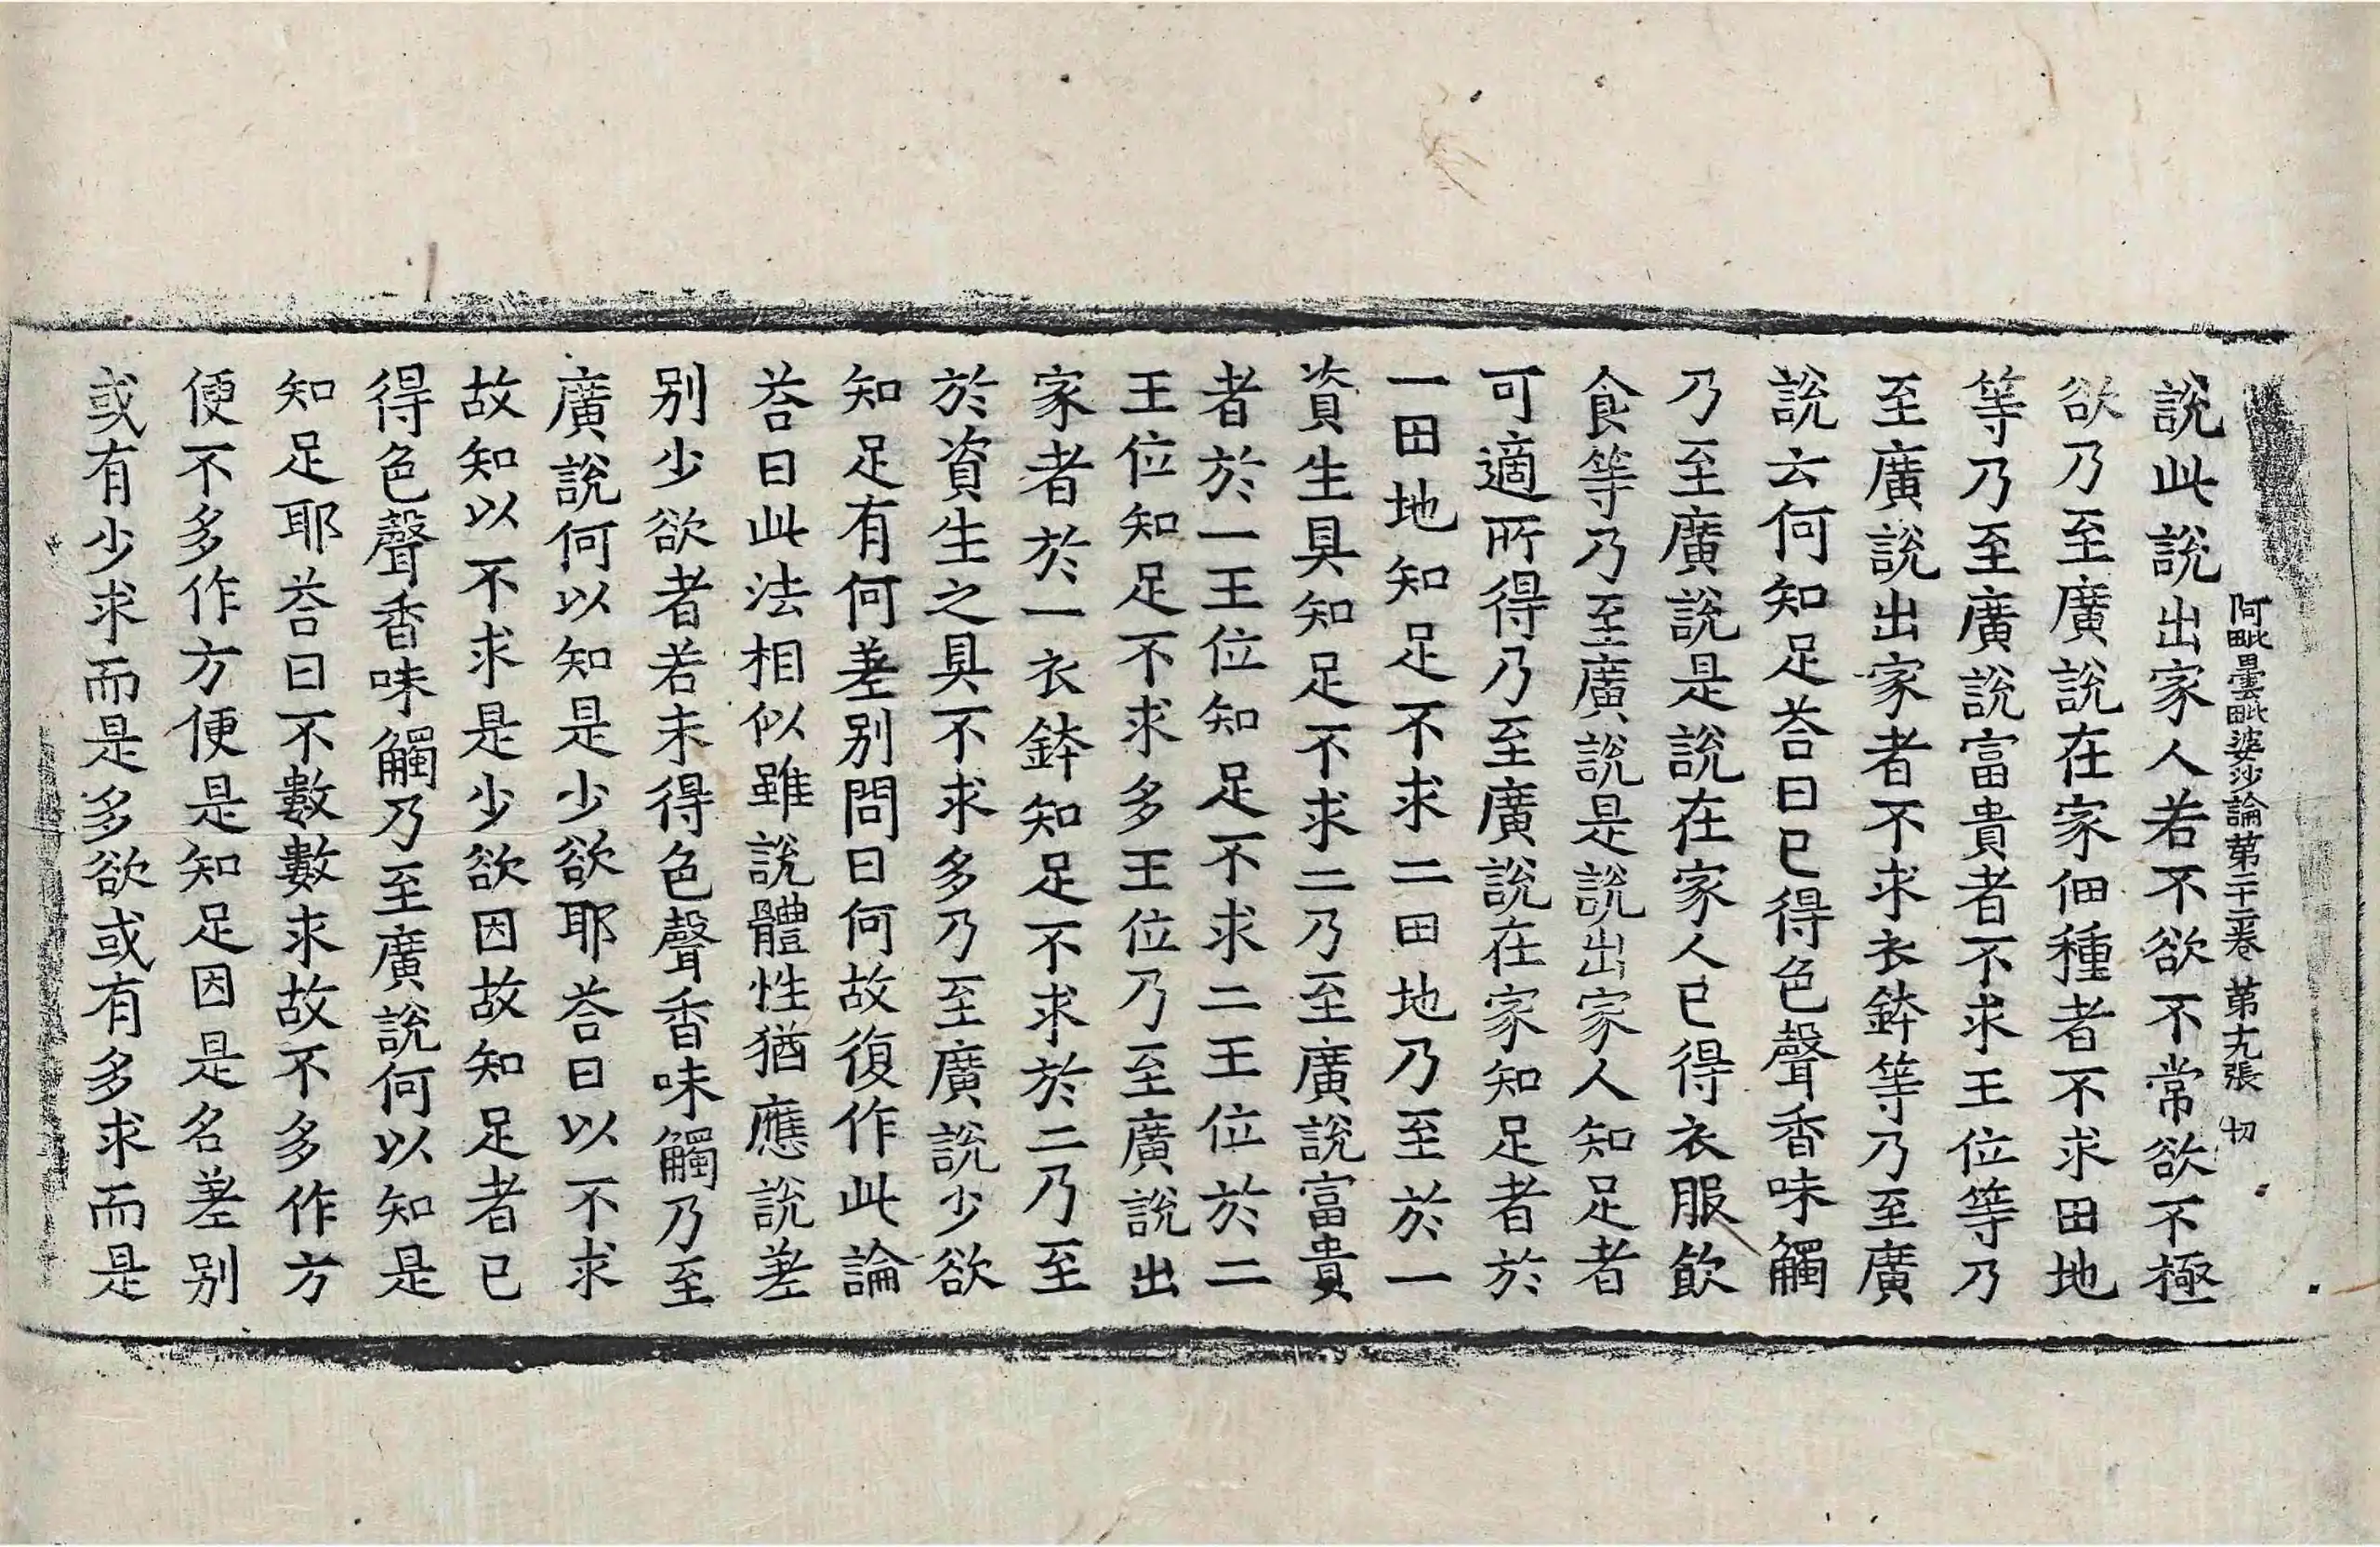 阿毗曇毗婆沙論第二十三卷 第十九張 切
說此說出家人若不欲不常欲不極
欲乃至廣說在家佃種者不求田地
等乃至廣說富貴者不求王位等乃
至廣說出家者不求衣鉢等乃至廣
說云何知足荅曰已得色聲香味觸
乃至廣說是說在家人已得衣服飲
食等乃至廣說是說出家人知足者
可適所得乃至廣說在家知足者於
一田地知足不求二田地乃至於一
資生具知足不求二乃至廣說富貴
者於一王位知足不求二王位於二
王位知足不求多王位乃至廣說出
家者於一衣鉢知足不求於二乃至
於資生之具不求多乃至廣說少欲
知足有何差別問曰何故復作此論
荅曰此法相似雖說體性猶應說差
別少欲者若未得色聲香味觸乃至
廣說何以知是少欲耶荅曰以不求
故知以不求是少欲因故知足者已
得色聲香味觸乃至廣說何以知是
知足耶荅曰不數數求故不多作方
便不多作方便是知足因是名差別
或有少求而是多欲或有多求而是